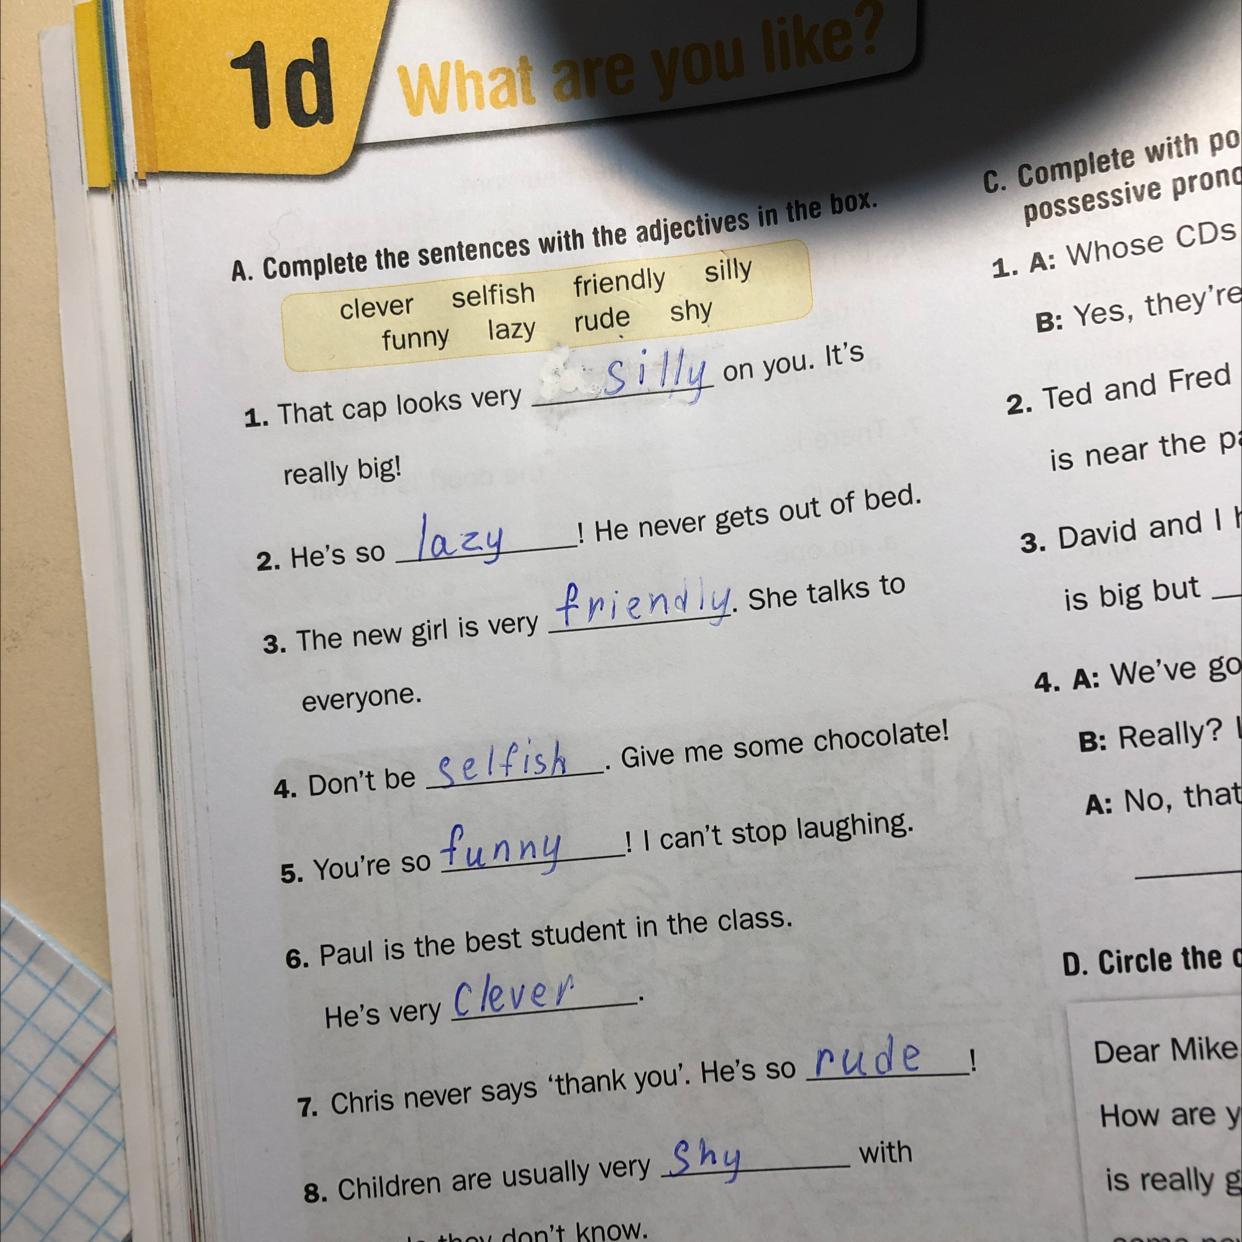 1d What are you like?
A. Complete the sentences with the adjectives in the box.
clever selfish friendly silly
funny lazy rude shy
1. That cap looks very silly on you. It's
really big!
2. He's so lazy ! He never gets out of bed.
3. The new girl is very friendly. She talks to
everyone.
4. Don't be selfish. Give me some chocolate!
5. You're so funny ! I can't stop laughing.
6. Paul is the best student in the class.
He's very Clever.
7. Chris never says 'thank you'. He's so rude !
8. Children are usually very Shy with
they don't know.
C. Complete with
possessive
1. A: Whose CDs
B: Yes, they're
2. Ted and Fred
is near the
3. David and I
is big but
4. A: We've
B: Really?
A: No, that
D. Circle the
Dear Mike
How are
is really